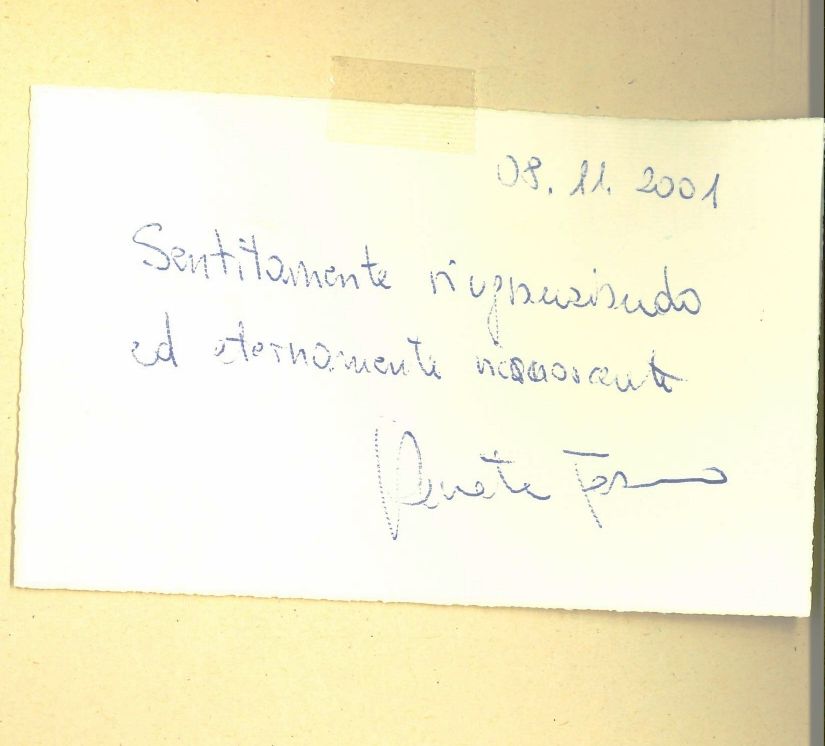 08.11.2001
Sentitamente ringraziando
ed eternamente riconoscente
Renato